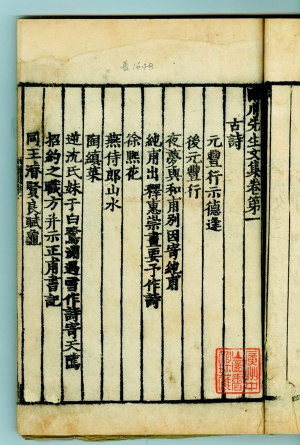 川先生文集卷第一
古詩
元豐行示德逢
後元豐行
夜夢與和甫別因寄純甫
純甫出釋惠崇畫要予作詩
徐熙花
燕侍郎山水
陶縝菜
逆沈氏妹于白鷺洲遇雪作詩寄天隲
招約之職方并示正甫書記
同王濬賢良賦龜